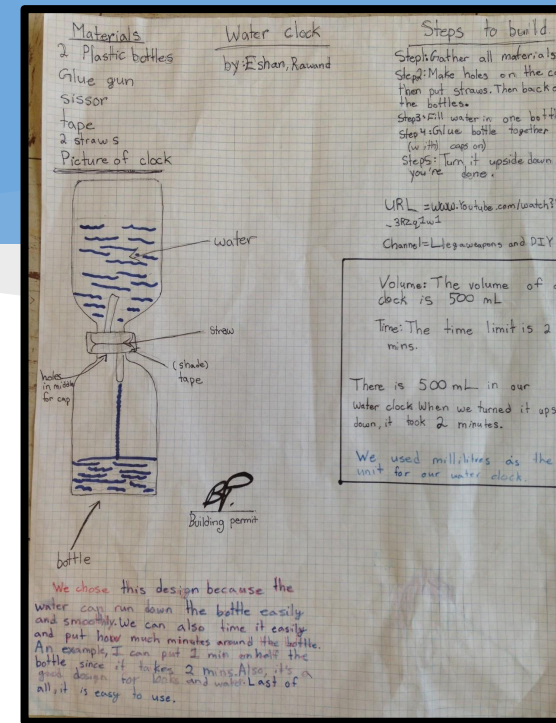 Materials
2 Plastic bottles
Glue gun
sissor
tape
2 straws
Picture of clock
water
straw
(shade)
tape
holes
in middle
for cap
bottle
Building permit
We chose this design because the
water can run down the bottle easily
and smoothly. We can also time it easily
and put how much minutes around the bottle.
An example, I can put 1 min on half the
bottle, since it takes 2 mins. Also, it's a
good design for looks and water. Last of
all, it is easy to use.
Water clock
by: Eshan, Rawand
Steps to build
Step1: Gather all materials
Step2: Make holes on the
then put straws. Then back
the bottles.
Step3: Fill water in one
Step4: Glue bottle together
(with caps on)
Step5: Turn it upside down
you're done.
URL = www.Youtube.com/watch?
Channel = and DIY
Volume: The volume of
clock is 500 mL
Time: The time limit is 2
mins.
There is 500 mL in our
water clock When we turned it
down, it took 2 minutes.
We used millilitres as the
unit for our water clock.